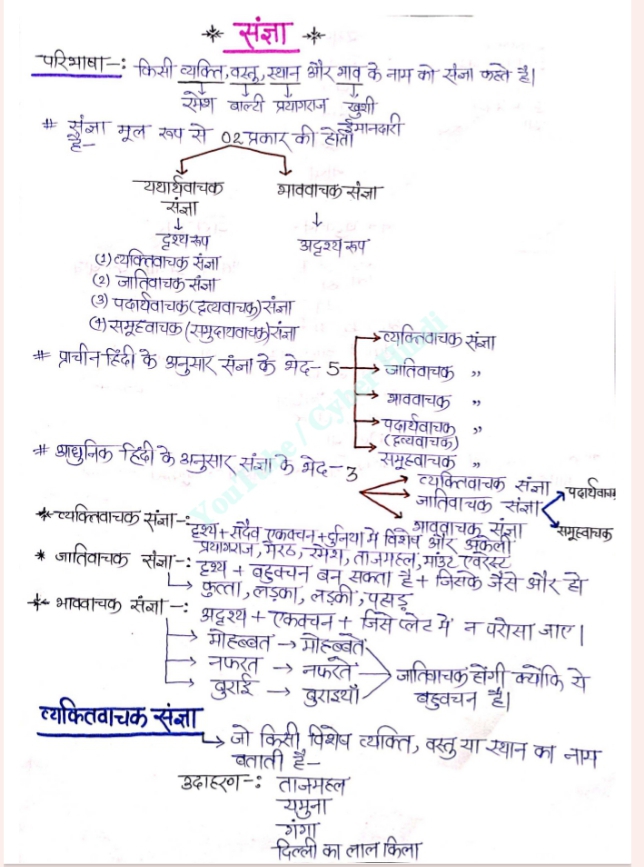 संज्ञा
परिभाषा-: किसी व्यक्ति, वस्तु, स्थान और भाव के नाम को संज्ञा कहते है।
रमेश बाल्टी प्रयागराज खुशी
ईमानदारी
# संज्ञा मूल रूप से 02 प्रकार की होती
है-
यथार्थवाचक भाववाचक संज्ञा
संज्ञा
दृश्य रूप अदृश्य रूप
(1) व्यक्तिवाचक संज्ञा
(2) जातिवाचक संज्ञा
(3) पदार्थवाचक(द्रव्यवाचक)संज्ञा
(4) समूहवाचक(समुदायवाचक)संज्ञा
# प्राचीन हिंदी के अनुसार संज्ञा के भेद- 5
व्यक्तिवाचक संज्ञा
जातिवाचक "
भाववाचक "
पदार्थवाचक "
(द्रव्यवाचक)
समूहवाचक "
# आधुनिक हिंदी के अनुसार संज्ञा के भेद- 3
व्यक्तिवाचक संज्ञा
जातिवाचक संज्ञा
भाववाचक संज्ञा
पदार्थवाचक
समूहवाचक
* व्यक्तिवाचक संज्ञा-: दृश्य + सदैव एकवचन + दुनिया मे विशेष और अकेली
प्रयागराज, मेरठ, रमेश, ताजमहल, माउंट एवरेस्ट
* जातिवाचक संज्ञा-: दृश्य + बहुवचन बन सकता है + जिसके जैसे और हो
कुत्ता, लड़का, लड़की, पहाड़
* भाववाचक संज्ञा-: अदृश्य + एकवचन + जिसे प्लेट में न परोसा जाए।
मोहब्बत → मोहब्बतें
नफरत → नफरतें
बुराई → बुराइयाँ
जातिवाचक होंगी क्योंकि ये
बहुवचन है।
व्यक्तिवाचक संज्ञा
जो किसी विशेष व्यक्ति, वस्तु या स्थान का नाम
बताती है-
उदाहरण-: ताजमहल
यमुना
गंगा
दिल्ली का लाल किला
YouTube / Cyber Hindi